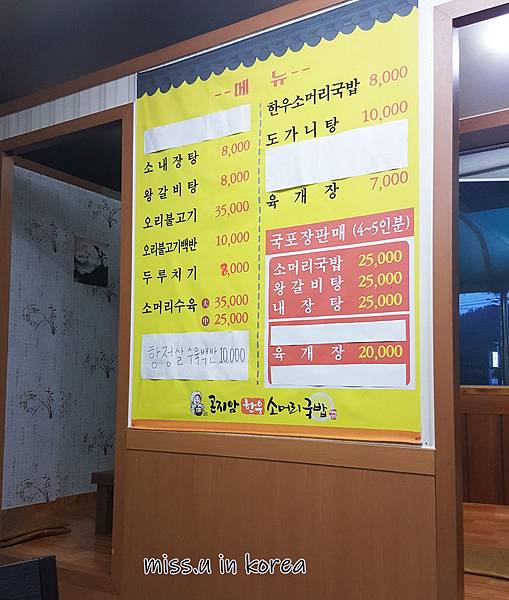 --메 뉴--
소내장탕 8,000
왕갈비탕 8,000
오리불고기 35,000
오리불고기백반 10,000
두루치기 8,000
소머리수육 大 35,000
中 25,000
항정살 수육백반 10,000
한우소머리국밥 8,000
도가니탕 10,000
육개장 7,000
국포장판매 (4~5인분)
소머리국밥 25,000
왕갈비탕 25,000
내장탕 25,000
육개장 20,000
곤지암 한우 소머리국밥
miss.u in korea